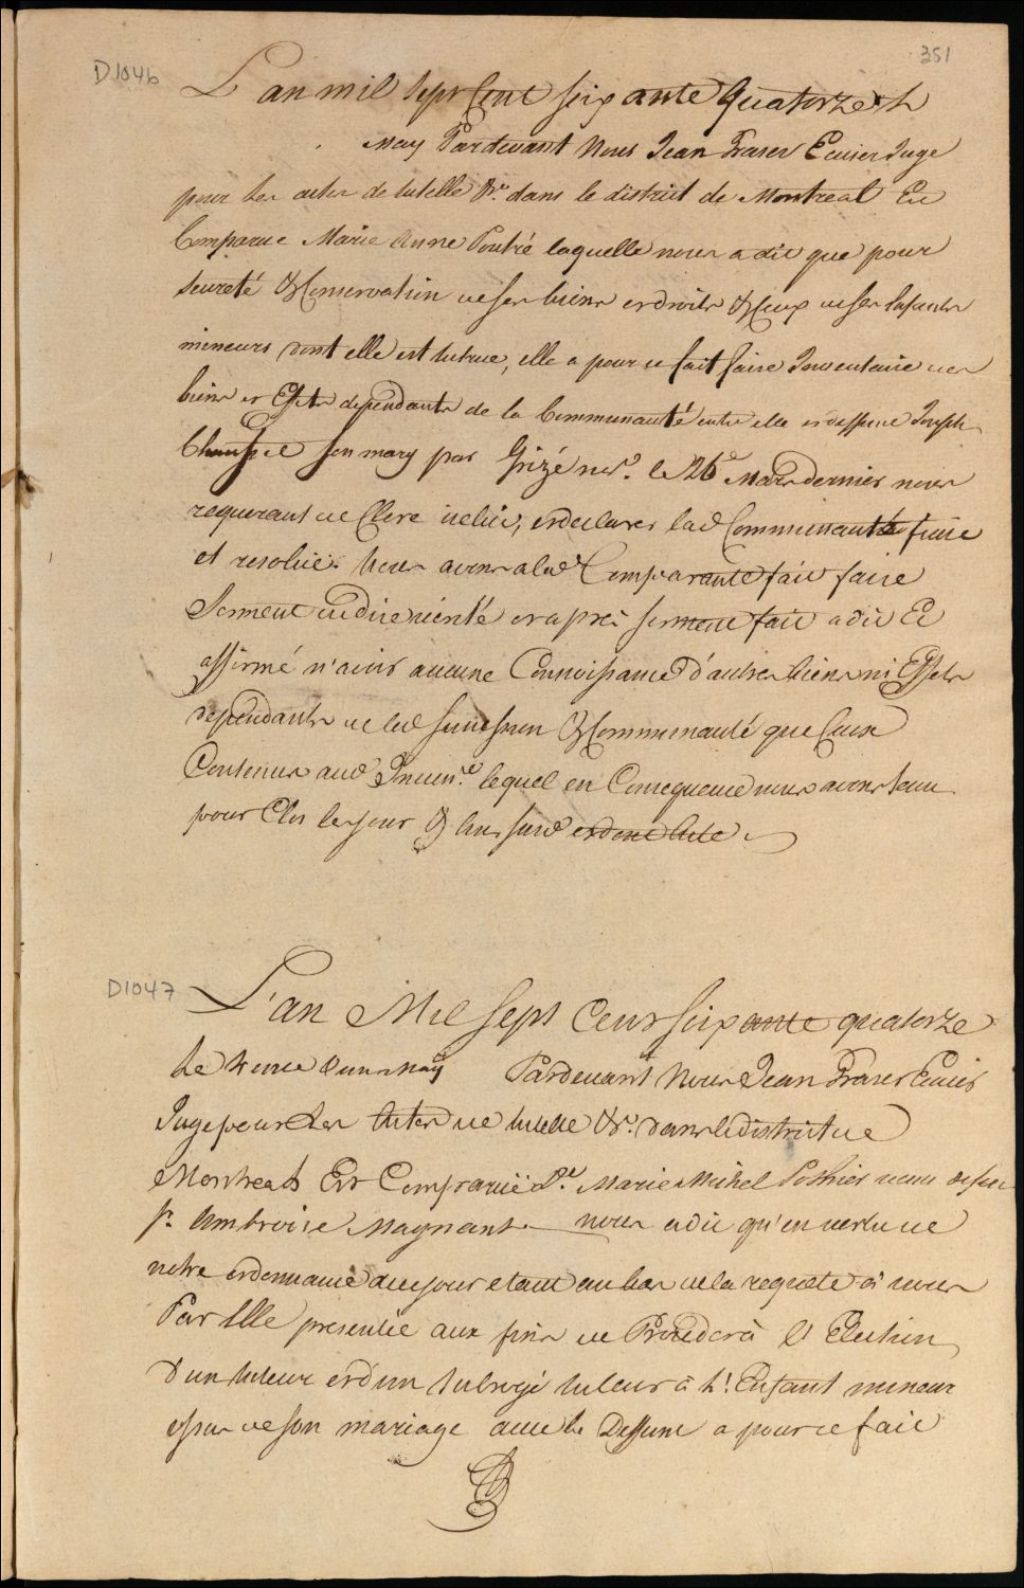 351
D1046
L'an mil Sept Cent soixante Quatorze le
May Pardevant Nous Jean Fraser Ecuier Juge
pour les actes de tutelle &c. dans le district de Montreal Est
Comparue Marie Anne Poutré laquelle nous a dit que pour
seureté & Conservation de ses biens et droits & Ceux de ses Enfants
mineurs dont elle est tutrice, elle a pour ce fait faire Inventaire des
biens et Effets dependants de la Communauté entre elle et deffunt Joseph
son mary par Grizé nore. le 26e Mars dernier nous
requerant de Clore icelui, et declarer lad Communauté finie
et resolüe. Nous avons alad Comparante fait faire
Serment de dire verité et après serment fait a dit Et
affirmé n'avoir aucune Connoissance d'autres biens ni Effets
dependants de lad succession & Communauté que Ceux
Contenus aud Inven.re lequel en Consequence nous avons tenu
pour Clos les jour & an susd et donné Acte.
D1047
L'an Mil Sept Cent soixante quatorze
Le may Pardevant Nous Jean Fraser Ecuier
Juge pour Les Actes de tutelle &c. dans le district de
Montreal Est Comparüe De. Marie Michel Pothier veuve de feu
Sr. Ambroise Magnant nous a dit qu'en vertu de
notre ordonnance de ce jour etant au bas de la requete à nous
Par Elle presentée aux fins de Proceder à l'Election
D'un tuteur et d'un subrogé tuteur à L'Enfant mineur
issu de son mariage avec le Deffunt a pour ce fait